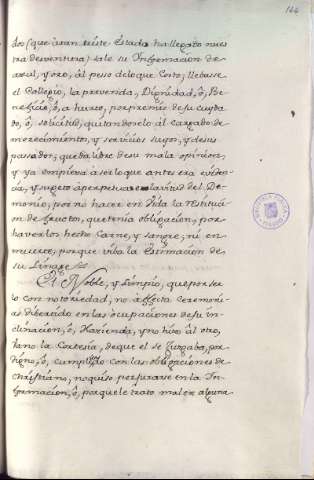 164
dos (que à tan triste Estado ha llegado nues
tra desventura) sale su Informacion de
azul, y oro, al peso de lo que Costo; llebasse
el Collegio, la prevenda, Dignidad, ò, Be-
neficio, ò, a hurto, por premio de su cuyda
do, ò, solicitud, quitandoselo àl cargado de
merecimientos, y servicios suyos, y de sus
passados; queda libre de su mala opinion,
y ya empieza à ser lo que antes era eviden
cia, y sugeto à perpetua esclavitud del De-
monio, por no hacer en Vida la restitucion
de fructo, que tenia obligacion, por
haverlos hecho Carne, y sangre, ni en
muerte, porque viba la Estimacion de
su Linage
El Noble, y Limpio, que por ser
lo con notoriedad, no àffecta ceremoni-
as divertido en las ocupaciones de su in-
clinacion, ò, Hacienda, y no hizo àl otro,
tano la Cortesia, de que el se Juzgaba, por
digno, ò, cumplido con las obligaciones de
christiano, no quiso perjurarse en la In-
formacion, ò, porque le trato mal en alguna